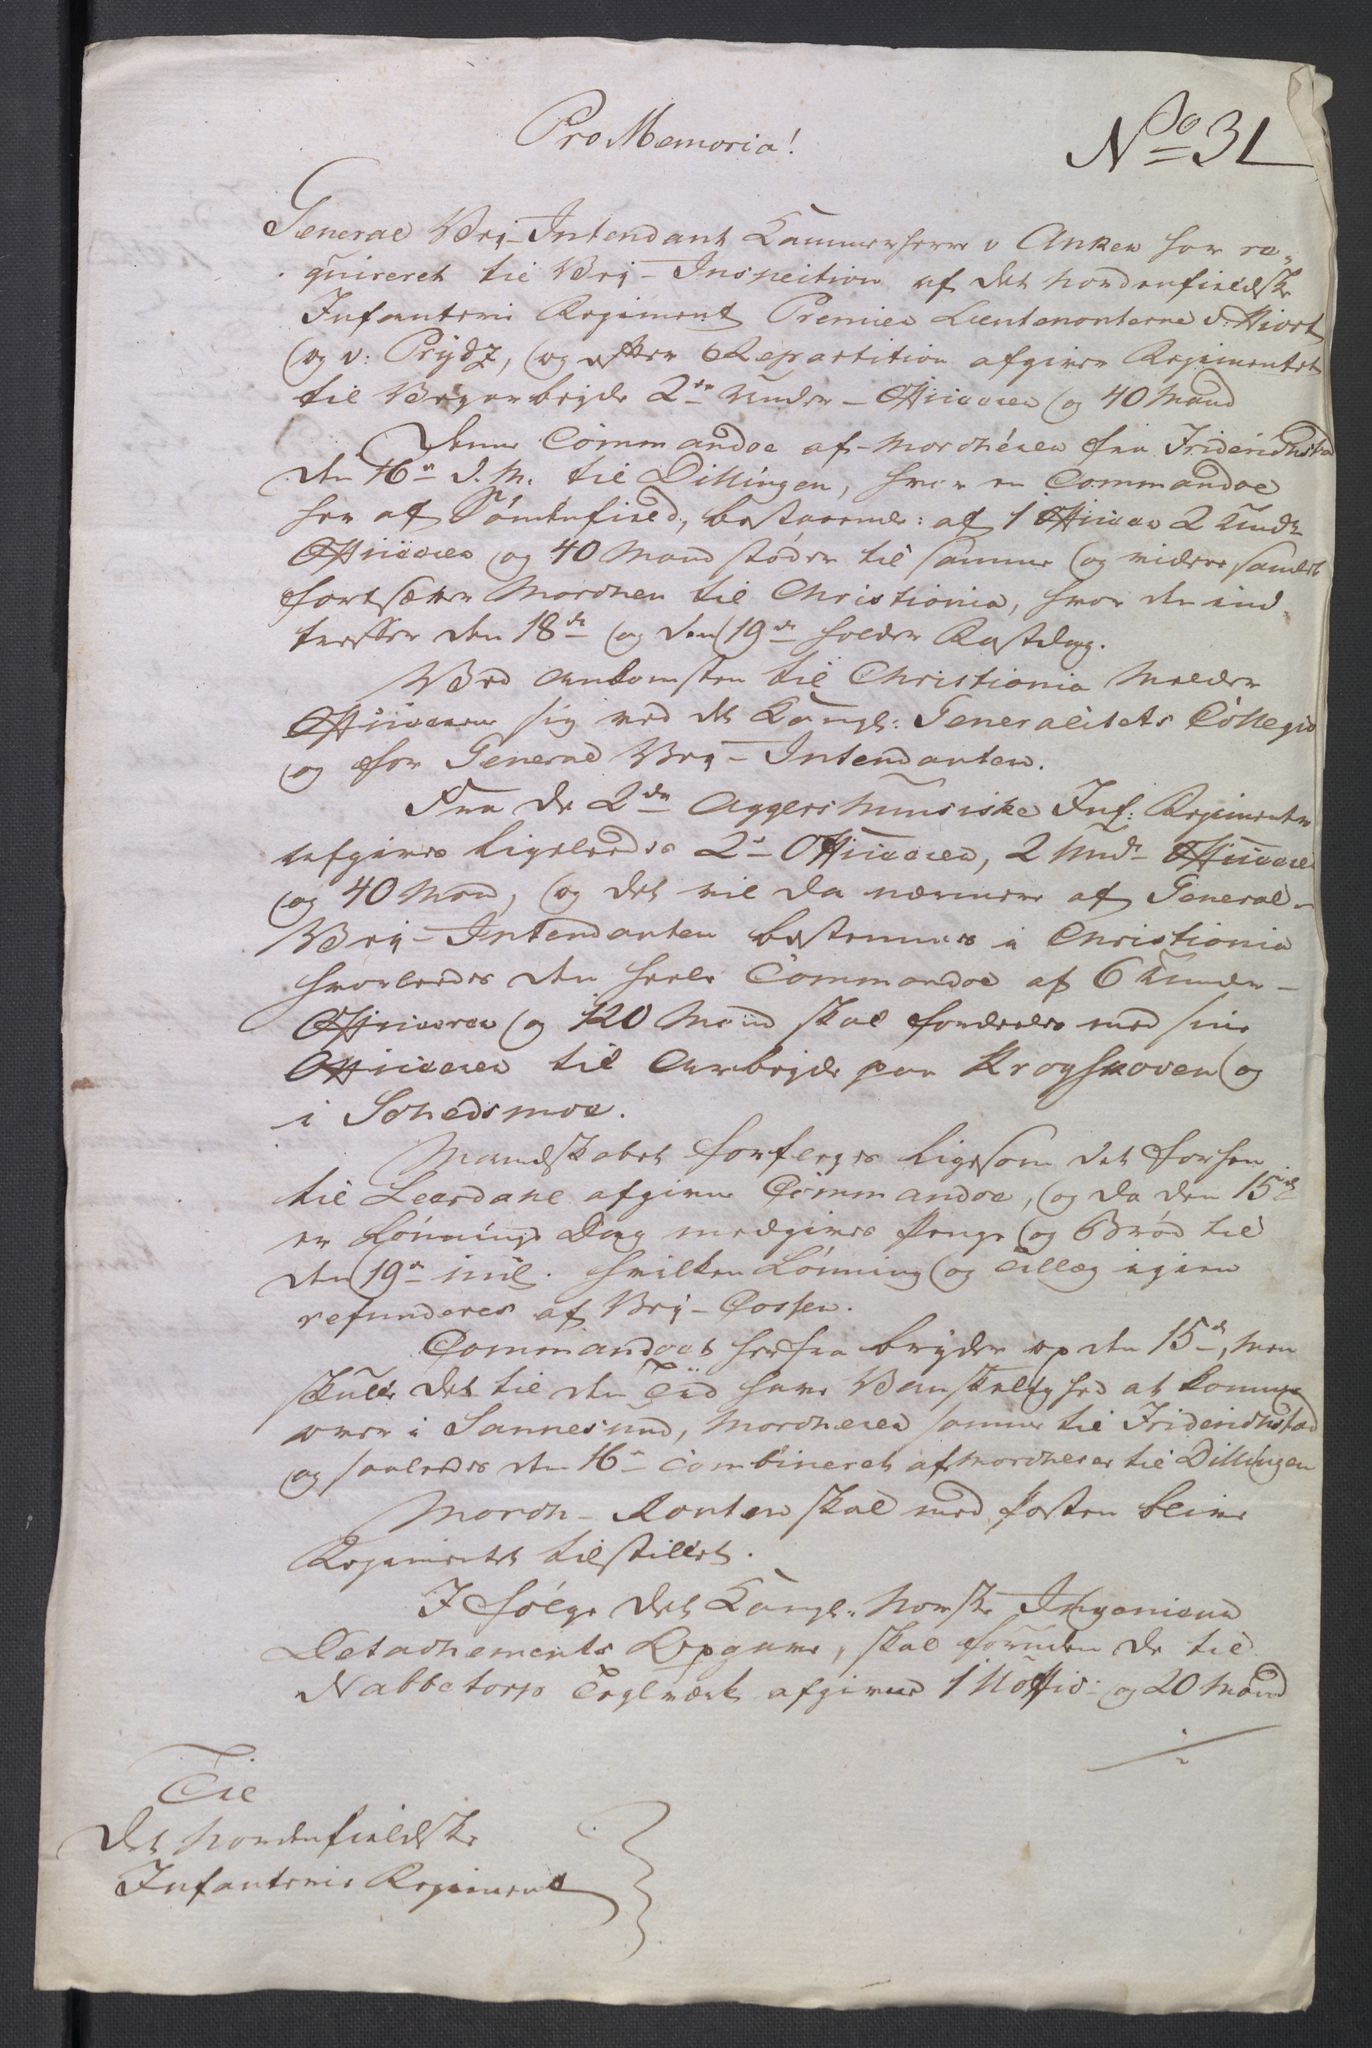 Pro Memoria!
No 31
General Vej-Intendant Kammerherre v Anker har re-
quireret til Vej-Inspection af det Nordenfieldske
Infanterie Regiment Premier Lieutenanterne v: Hiort
og v: Prydz, og efter Repartition afgiver Regimentet
til Vejarbejde 2de Under-Officerer og 40 Mand
Denne Commandoe af-Marcherer fra Friderichstad
den 16n d. M. til Dillingen, hvor en Commandoe
her af Søndenfield, bestaaende: af 1 Officer 2 Undr
Officerer og 40 Mand støder til samme og videre samlet
fortsætter Marchen til Christiania, hvor de ind-
treffer den 18de og den 19de holder Rastdag.
Ved Ankomsten til Christiania Melder
Officererne sig ved det Kongl: Generalitets Collegio
og for General Vej-Intendanten.
Fra de 2de Aggershuusiske Inf: Regimenter
afgives ligeledes 2de Officerer, 2 Undr Officerer
og 40 Mand, og det vil da nærmere af General-
Vej-Intendanten bestemmes i Christiania
hvorledes den heele Commandoe af 6 Under-
Officerer og 120 Mand skal fordeeles med sine
Officerer til Arbejde paa Krogskoven og
i Schedsmoe.
Mandskabet forsørges ligesom det forhen
til Leerdahl afgivne Commandoe, og da den 15de
er Lønnings Dag medgives Penge og Brød til
den 19n incl. hvilken Lønning og Tillæg igien
refunderes af Vej-Cassen.
Commandoet herfra bryder op den 15de, men
skulle det til den Tiid have Vanskelighed at komme
over i Sannesund, Marcherer samme til Friderichstad
og saaledes den 16n combineret afmarcherer til Dillingen
March-Routen skal med Posten blive
Regimentet tilstillet.
I følge det Kongl: Norske Ingenieur
Detachements Opgave, skal foruden de til
Nabbetorp Teglværk afgivne 1 Uoffic: og 20 Mand
Til
det Nordenfieldske
Infanterie Regiment